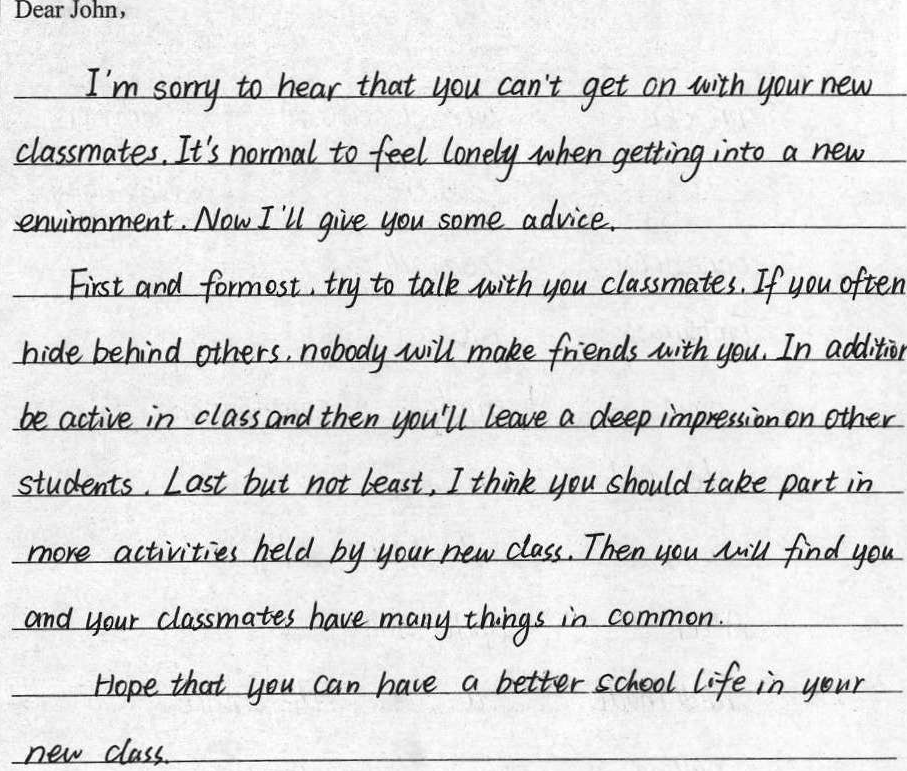 Dear John,
I'm sorry to hear that you can't get on with your new
classmates. It's normal to feel lonely when getting into a new
environment. Now I'll give you some advice.
First and formost, try to talk with you classmates. If you often
hide behind others, nobody will make friends with you. In addition
be active in class and then you'll leave a deep impression on other
students. Last but not least, I think you should take part in
more activities held by your new class. Then you will find you
and your classmates have many things in common.
Hope that you can have a better school life in your
new class.